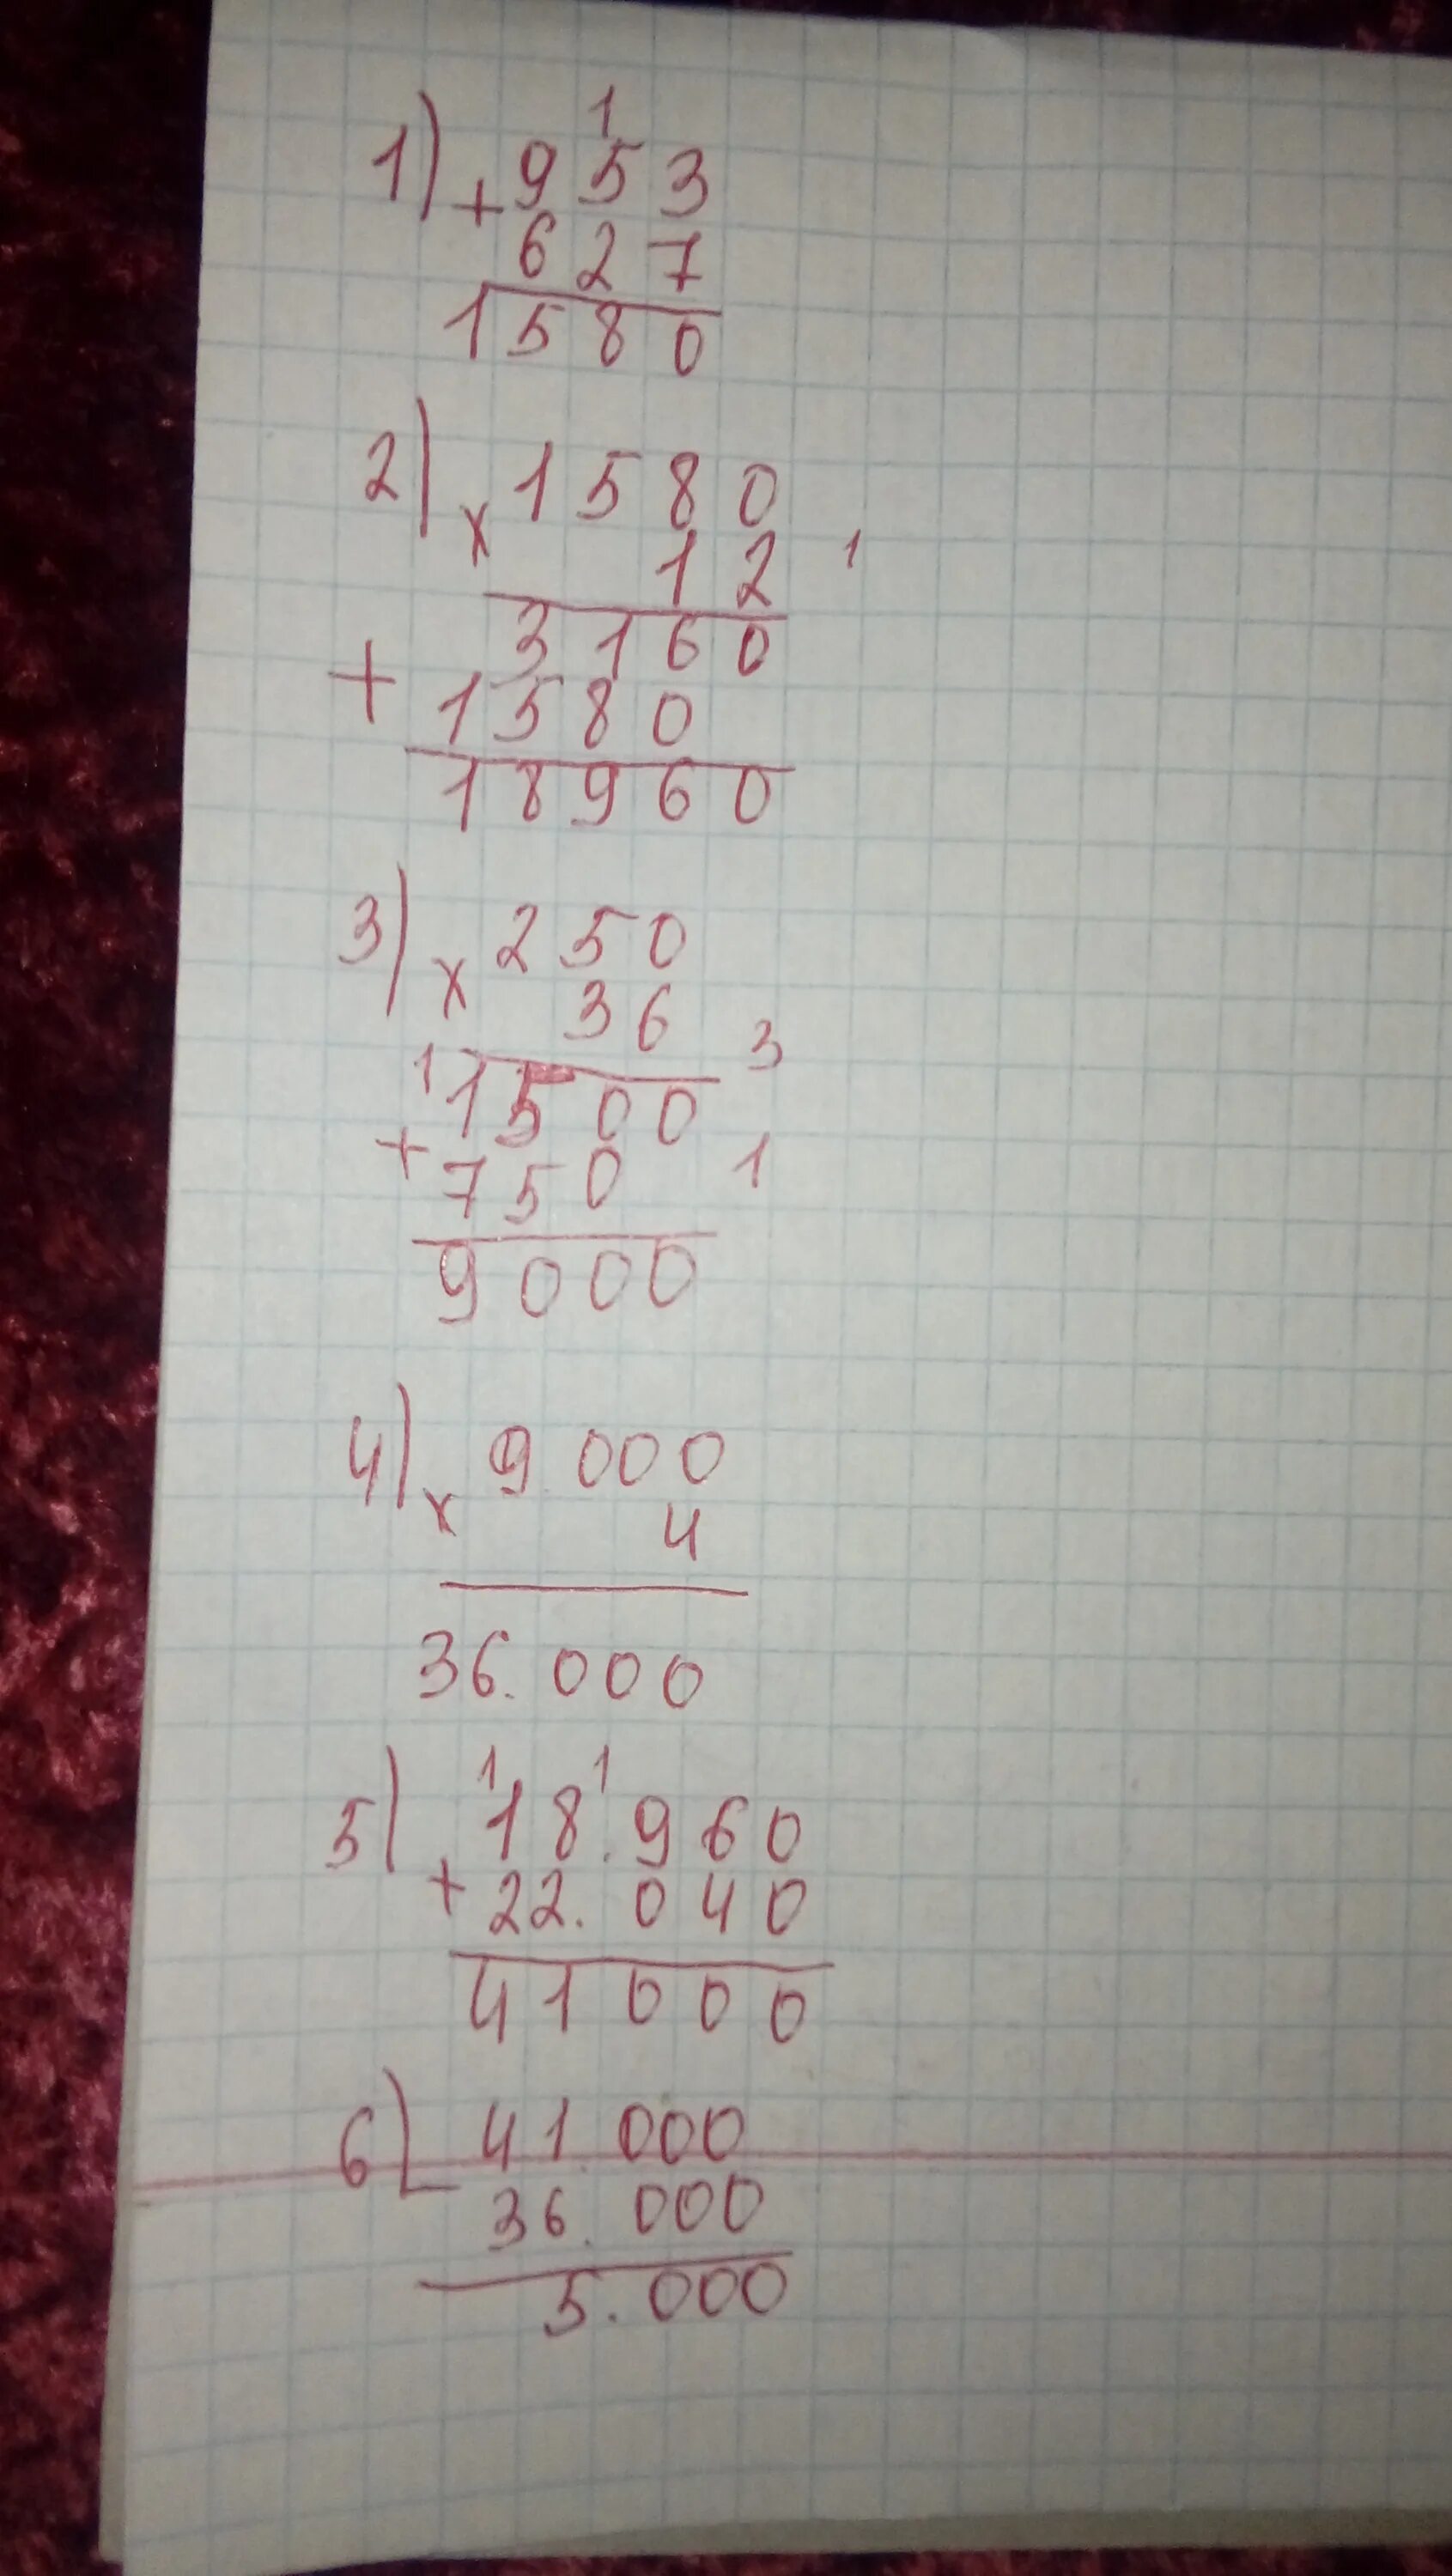 1
1) + 953
627
1580
2) x 1580
12 1
3160
+ 1580
18960
3) x 250
36 3
1 1500
+ 750 1
9000
4) x 9.000
4
36.000
1 1
5) 18.960
+ 22.040
41000
6) - 41.000
36.000
5.000